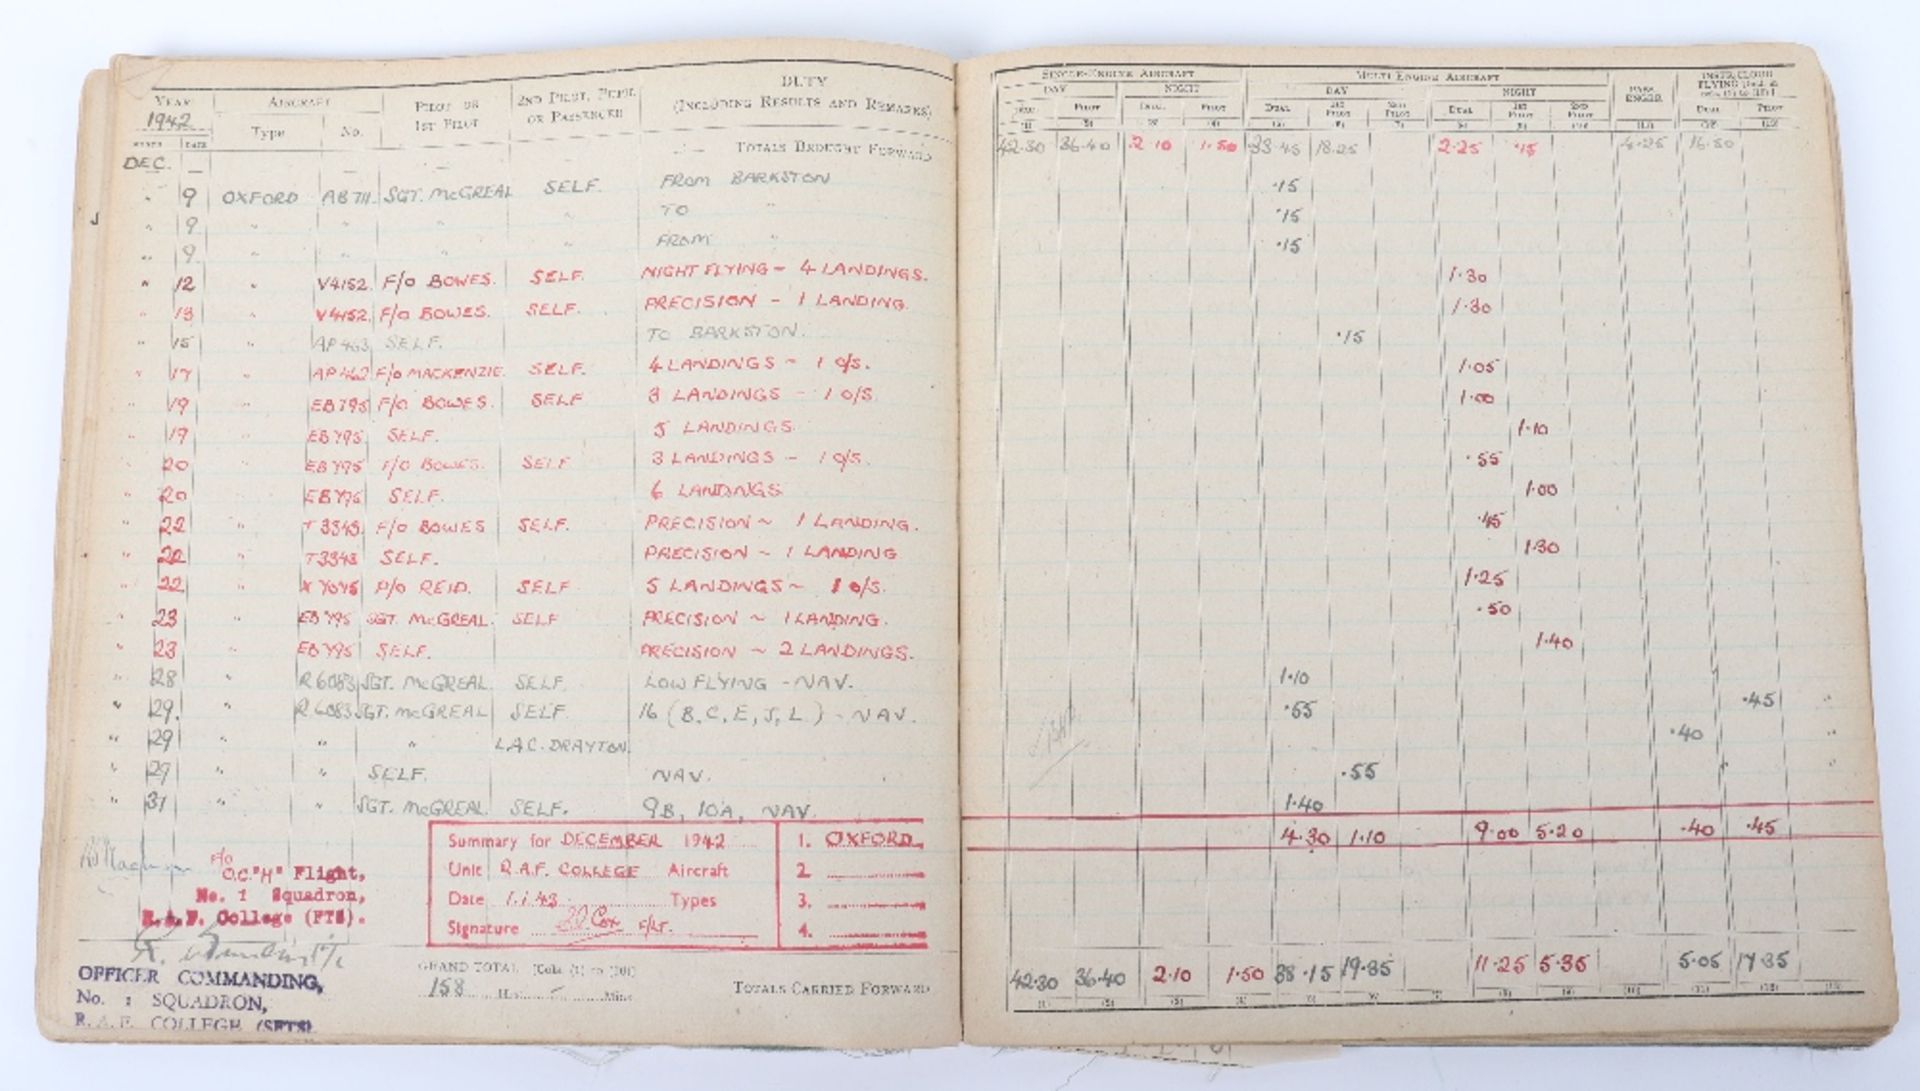 YEAR AIRCRAFT PILOT OR 1ST PILOT 2ND PILOT, PUPIL OR PASSENGER DUTY (INCLUDING RESULTS AND REMARKS)
1942 Type No.
MONTH DATE
DEC. — — — — — TOTALS BROUGHT FORWARD
" 9 OXFORD AB711. SGT. McGREAL SELF. FROM BARKSTON
" 9 " " " " TO "
" 9 " " " " FROM "
" 12 " V4152. F/O BOWES. SELF. NIGHT FLYING – 4 LANDINGS.
" 13 " V4152. F/O BOWES. SELF. PRECISION – 1 LANDING.
" 15 " AP463 SELF. TO BARKSTON.
" 17 " AP462 F/O MACKENZIE. SELF. 4 LANDINGS ~ 1 O/S.
" 19 " EB795 F/O BOWES. SELF 3 LANDINGS – 1 O/S.
" 19 " EB795 SELF. 5 LANDINGS
" 20 " EB795 F/O BOWES. SELF 3 LANDINGS – 1 O/S.
" 20 " EB795 SELF. 6 LANDINGS
" 22 " T3343. F/O BOWES SELF. PRECISION ~ 1 LANDING.
" 22 " T3343 SELF. PRECISION ~ 1 LANDING
" 22 " P/O REID. SELF 5 LANDINGS ~ 1 O/S.
" 23 " EB795 SGT. McGREAL. SELF PRECISION ~ 1 LANDING.
" 23 " EB795 SELF. PRECISION ~ 2 LANDINGS.
" 28 " R6083 SGT. McGREAL. SELF. LOW FLYING – NAV.
" 29. " R6083 SGT. McGREAL SELF. 16 (B, C, E, J, L.) – NAV.
" 29 " " " LAC. DRAYTON.
" 29 " " SELF. NAV.
" 31 " " SGT. McGREAL SELF. 9B, 10A, NAV.
F/O
O.C. "H" Flight,
No. 1 Squadron,
R.A.F. College (FTS).
OFFICER COMMANDING,
No. 1 SQUADRON,
R.A.F. COLLEGE (SFTS)
Summary for DECEMBER 1942 1. OXFORD.
Unit R.A.F. COLLEGE Aircraft 2.
Date 1.1.43 Types 3.
Signature Cox F/LT. 4.
GRAND TOTAL [Cols. (1) to (10)]
158 Hrs. – Mins.
TOTALS CARRIED FORWARD
SINGLE-ENGINE AIRCRAFT MULTI-ENGINE AIRCRAFT PASSENGER INSTR/CLOUD FLYING
DAY NIGHT DAY NIGHT
DUAL PILOT DUAL PILOT DUAL 1ST PILOT 2ND PILOT DUAL 1ST PILOT 2ND PILOT DUAL PILOT
(1) (2) (3) (4) (5) (6) (7) (8) (9) (10) (11) (12) (13)
42.30 36.40 2.10 1.50 33.45 18.25 2.25 .15 16.50
.15
.15
.15
1.30
1.30
.15
1.05
1.00
1.10
.55
1.00
.45
1.30
1.25
.50
1.40
1.10
.55 .45
.40
.55
1.40
4.30 1.10 9.00 5.20 .40 .45
42.30 36.40 2.10 1.50 38.15 19.35 11.25 5.35 5.05 17.35
(1) (2) (3) (4) (5) (6) (7) (8) (9) (10) (11) (12) (13)